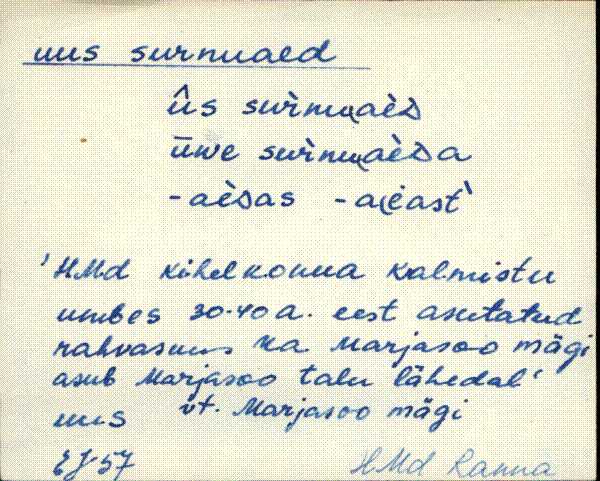 uus surnuaed
ûs surnu̯aèᴅ
ūwe surnu̯aèᴅa
-aèᴅas -ai̯ast'
'HMd kihelkonna kalmistu
umbes 30-40 a. eest asutatud
rahvasuus ka Marjasoo mägi
asub Marjasoo talu lähedal'
uus vt. Marjasoo mägi
EJ 57 HMd Ranna